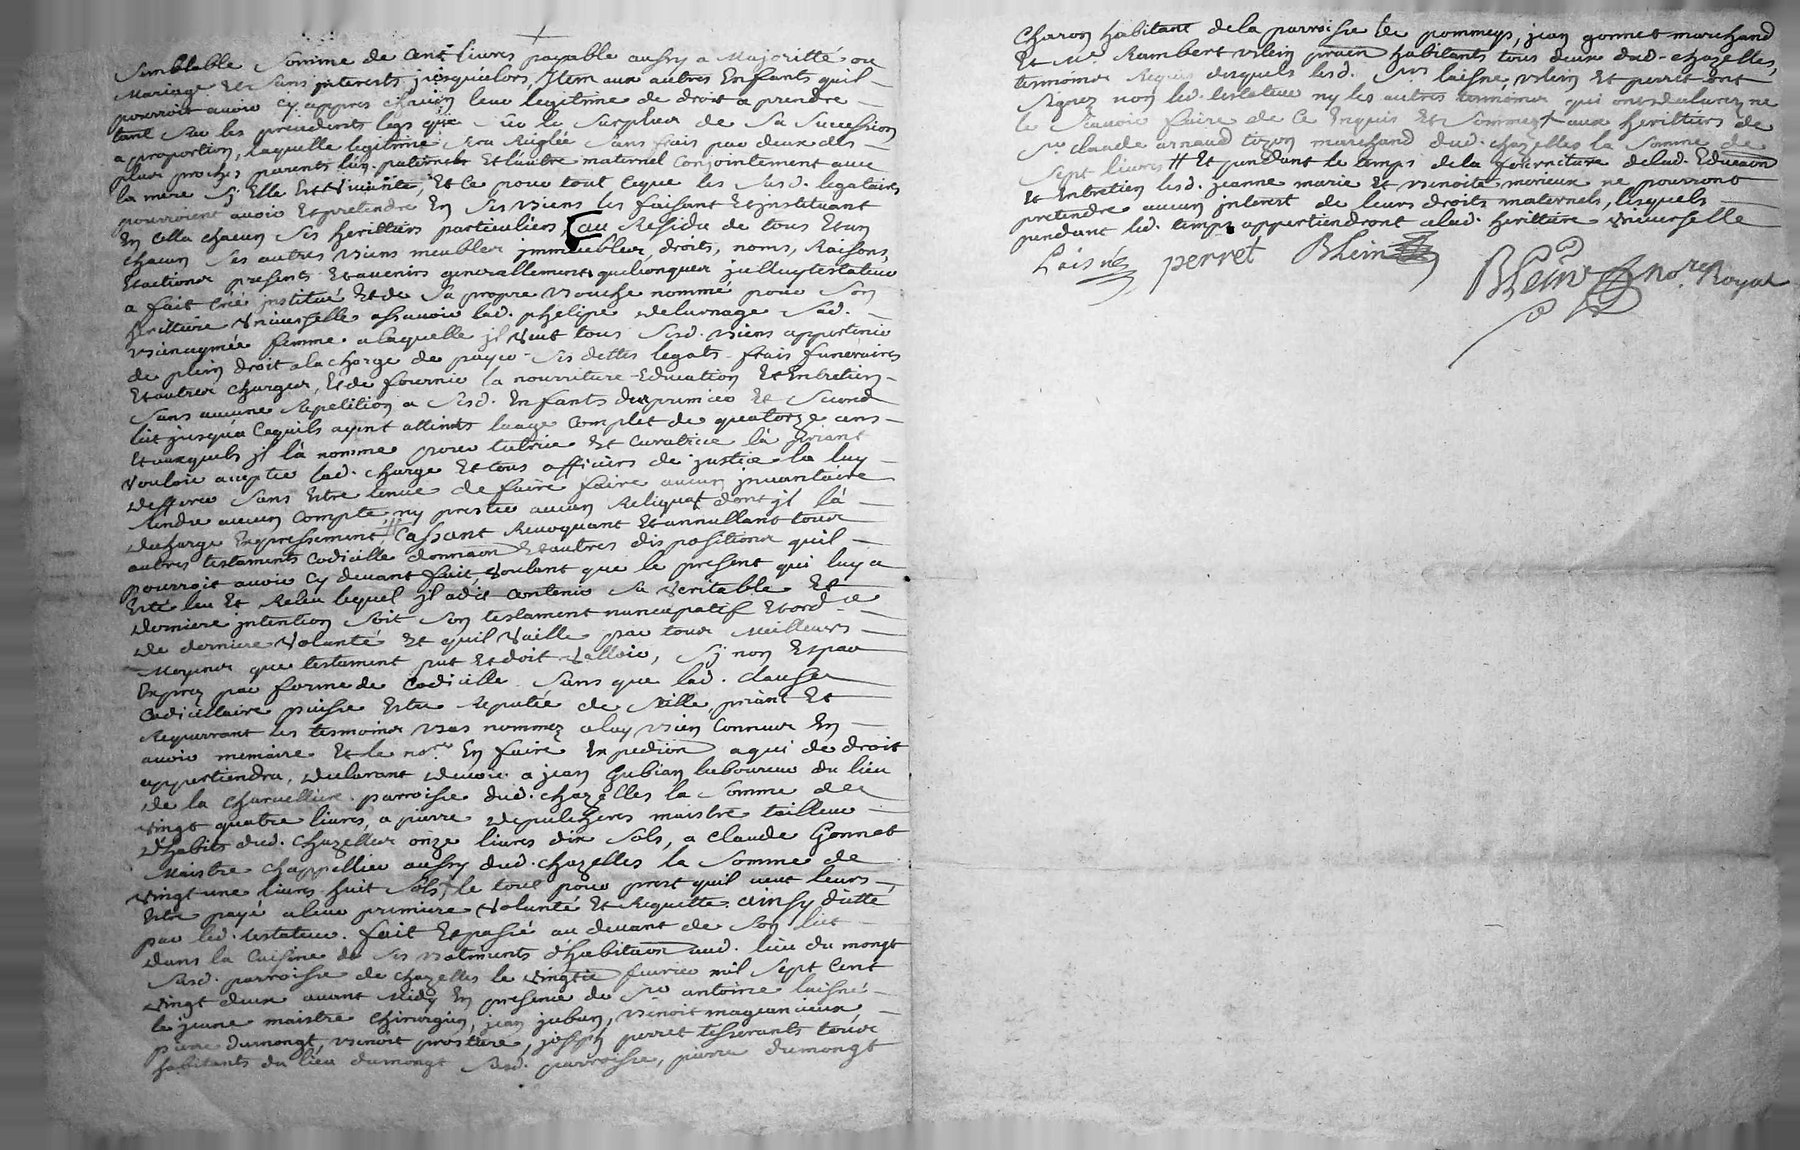 Semblable Somme de Cent livres payable aussy a Majoritté ou
Mariage Et Sans jnterests jusqualors, Jtem aux autres Enfants quil
pourroit avoir Cy appres chacun leur legitime de droit a prendre
tant Sur les precedents legs que Sur le Surplus de Sa Succession
a proportion, laquelle legitime Sera Reiglée Sans frais par deux des
plus proches parents l'un paternel Et l'autre maternel Conjointement avec
la mere Sj Elle Est Vivante, Et Ce pour tout Ceque les Susd. legataires
pourroient avoir Et pretendre En Ses biens les faisant Et jnstituant
En Cella chacun Ses heritiers particuliers, au Residu de tous Et un
chacun Ses autres biens meubles jmmeubles, droits, noms, Raisons,
Et actions presents Et avenirs generallement quelconques jcelluy testateur
a fait Créé jnstitué Et de Sa propre bouche nommé pour Son
heritiere Vniverselle assavoir lad. phelipe delurnage Sad.
bienaymée femme a laquelle jl Veut tous Sesd. biens appartenir
de plein droit a la charge de payer Ses dettes legats frais funeraires
Et autres charges, Et de fournir la nourriture Education Et Entretien
Sans aucune Repetition a Sesd. Enfants du premier Et Second
lit jusqua Cequils ayent atteints laage Complet de quatorze ans
Et auxquels jl la nomme pour tutrice Et Curatrice la priant
Vouloir accepter lad. charge Et tous officiers de justice la luy
defferer Sans Estre tenue de faire faire aucun jnvantaire
Rendre aucun Compte, ny prester aucun Reliquat dont jl la
decharge Expressement # Cassant Revoquant Et annullant tous
autres testaments Codicille donnaon Et autres dispositions quil
pourroit avoir Cy devant fait, Voulant que le present qui luy a
Esté leu Et Releu lequel jl a dit Contenir Sa Veritable Et
derniere jntention Soit Son testament nuncupatif Et ord.ce
de derniere Volunté Et quil Vaille par tous Meilleurs
Moyens que testament put Et doit Valloir, Sj non Et par
Exprez par forme de Codicille Sans que lad. clause
Codicillaire puisse Estre Reputée de Stille, priant Et
Requerrant les tesmoins bas nommez a luy bien Connus En
avoir memoire Et le no.re En faire Expedion a qui de droit
appartiendra, declarant devoir a jean Gubian laboureur du lieu
de la parroisse dud. chazelles la Somme de
Vingt quatre livres, a pierre maistre tailleur
d'habits dud. Chazelles onze livres dix Sols, a Claude Gonnet
Maistre chappellier aussy dud. chazelles la Somme de
Vingt une livres huit Sols, le tout pour prest quil Veut leurs
Estre payé a leur premiere Volunté Et Requette. ainsy dicté
par led. testateur. fait Et passé au devant de Son lict
dans la Cuisine de Ses batiments d'habitaon aud. lieu du mongt
Susd. parroisse de chazelles le Vingtie fevrier mil Sept Cent
Vingt deux avant Midy En presence de Sr antoine laisné
le jeune maistre chirurgien, jean juban, benoit
pierre dumongt, benoit, joseph perret tisserants tous
habitants du lieu dumongt Susd. parroisse, pierre dumongt
Charon habitant de la parroisse de pommeys, jean gonnet marchand
Et Me Rambert blein habitants tous deux dud. chazelles,
tesmoins Requis desquels lesd. Srs laisné, blein Et perret ont
Signez non led. testateur ny les autres tesmoins qui ont declarez ne
le Scavoir faire de Ce Enquis Et Sommez + aux heritiers de
Sr claude arnaud marchand dud. chazelles la Somme de
Sept livres # Et pendant le temps de la fourniture delad. Educaon
Et Entretien lesd. jeanne marie Et benoite ne pourront
pretendre aucun jnterest de leurs droits maternels, lesquels
pendant led. temps appartiendront a lad. heritiere Vniverselle
Laisné perret Blein
Blein no.re Royal